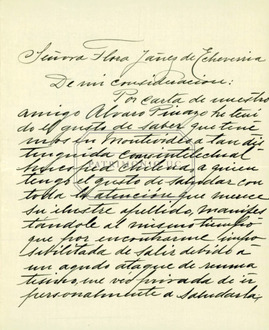 Señora Flora Yañes de Echeverria
De mi consideracion:
Por carta de nuestro
amigo Alvaro he teni
do el gusto de saber que tene
mos en Montevideo a tan dis
tinguida intelectual
chilena, a quien
tengo el gusto de saludar con
toda la atención que merece
su ilustre apellido, manifes
tándole al mismo tiempo
que por encontrarme impo
sibilitada de salir debido a
un agudo ataque de reuma
tismo, me veo privada de ir
personalmente a saludarla,